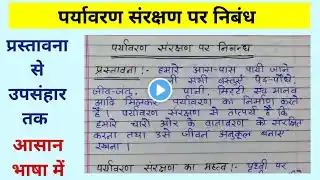 पर्यावरण संरक्षण पर निबंध
प्रस्तावना
से
उपसंहार
तक
आसान
भाषा में
पर्यावरण संरक्षण पर निबन्ध
प्रस्तावना :- हमारे आस-पास पायी जाने
सभी वस्तुएँ पेड़-पौधे,
जीव-जंतु, पानी, मिट्टी एवं मानव
आदि मिलकर पर्यावरण का निर्माण करते
हैं। पर्यावरण संरक्षण से तात्पर्य है कि
हमारे चारों ओर के वातावरण को संरक्षित
करना तथा उसे जीवन अनुकूल बनाए
रखना।
पर्यावरण संरक्षण का महत्व:- पृथ्वी पर